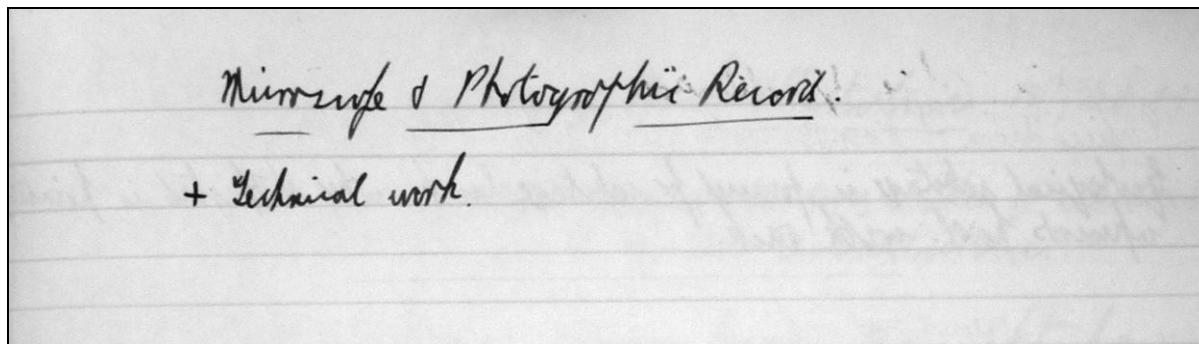 Microscope & Photographic Records.
+ Technical work.